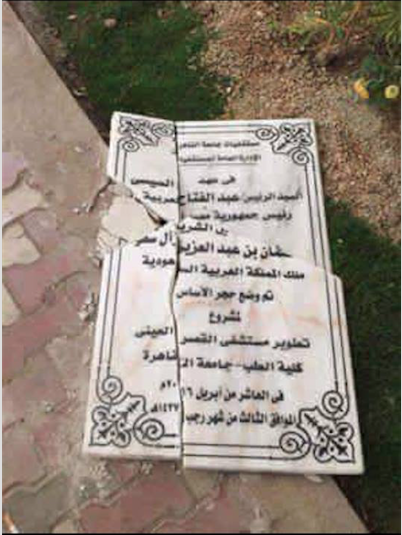 مستشفيات جامعة القاهر
الإدارة العامة لمستشفيا
فى عهد
السيد الرئيس/ عبد الفتاح السيسى
رئيس جمهورية مصر العربية
الشريف
بن عبد العزيز آل سعو
ملك المملكة العربية السعودية
تم وضع حجر الأساس
لمشروع
تطوير مستشفى القصر العينى
كلية الطب - جامعة القاهرة
فى العاشر من أبريل ٢٠١٦م
الموافق الثالث من شهر رجب ١٤٣٧هـ